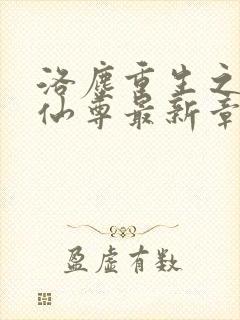 洛塵重生之
仙尊最新章
盈虚有数